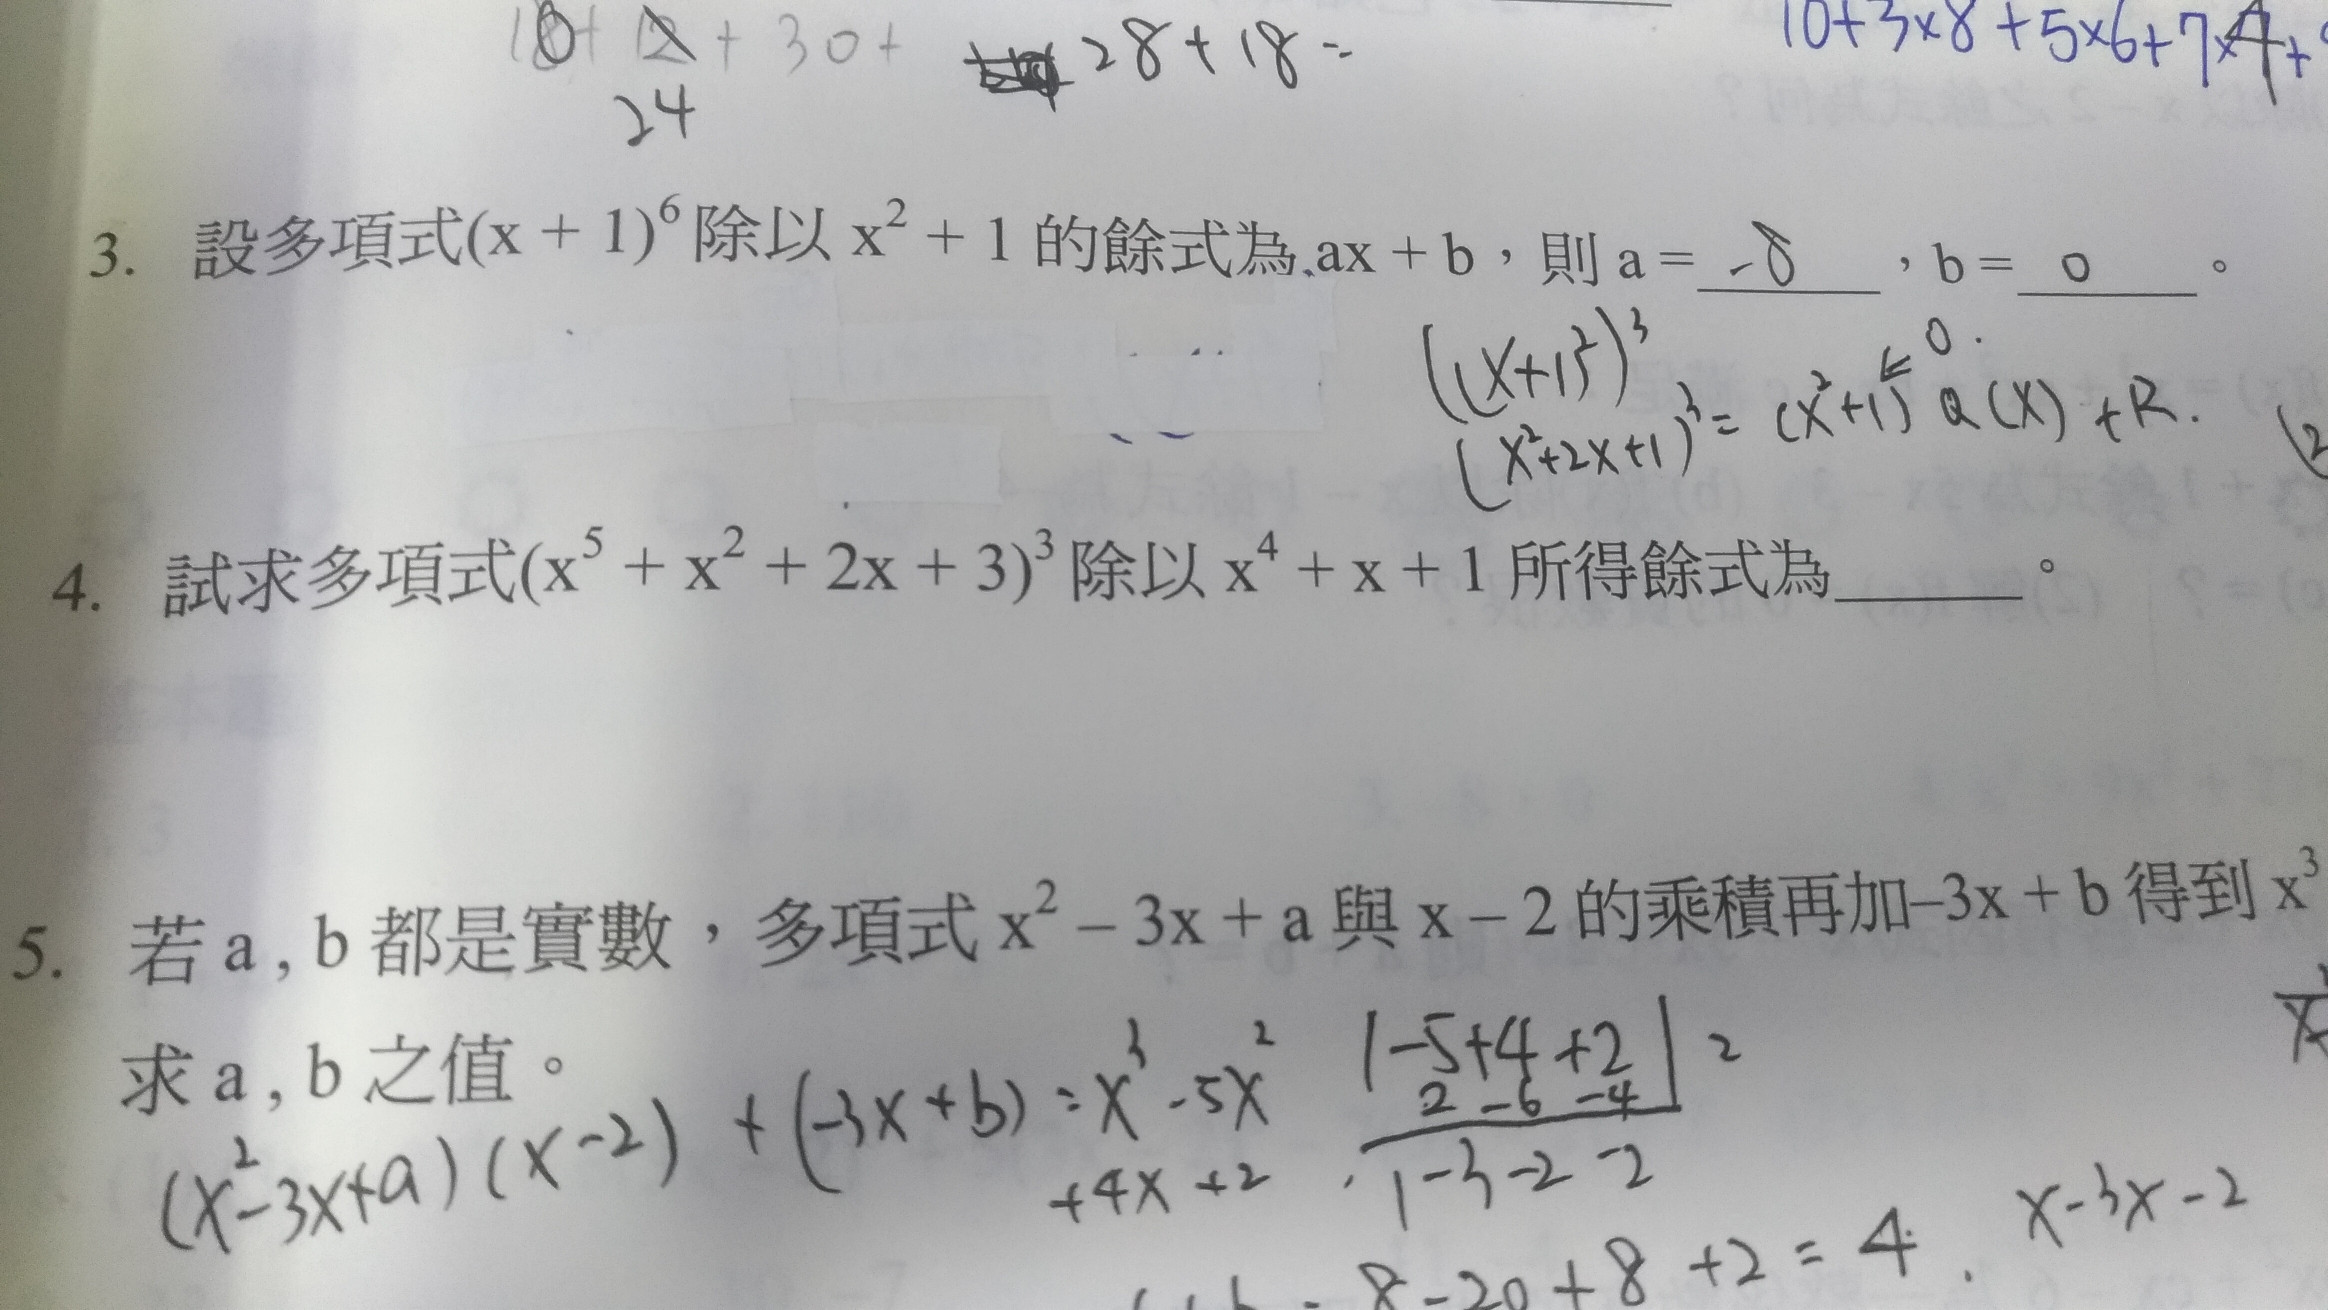 10+ 12 + 30+ 28+18=
24
10+3×8+5×6+7×4+
3. 設多項式(x + 1)⁶除以 x² + 1 的餘式為 ax + b，則 a = -8 ，b = 0 。
((x+1)²)³
(x²+2x+1)³ = (x²+1) Q(x) + R.
0.
4. 試求多項式(x⁵ + x² + 2x + 3)³除以 x⁴ + x + 1 所得餘式為______。
5. 若 a , b 都是實數，多項式 x² – 3x + a 與 x – 2 的乘積再加–3x + b 得到 x³
求 a , b 之值。
(x²-3x+a)(x-2) + (-3x+b) = x³-5x²
+4x+2
1-5+4+2 | 2
2-6-4
1-3-2-2
x-3x-2
8-20+8+2=4.